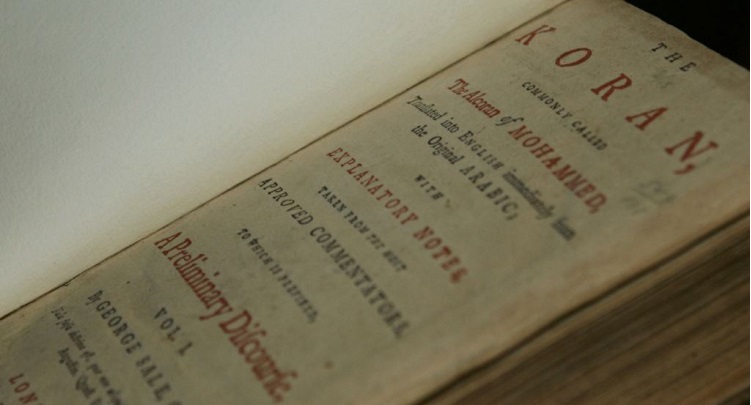 THE
KORAN,
COMMONLY CALLED
The Alcoran of MOHAMMED,
Tranſlated into ENGLISH immediately from
the Original ARABIC;
WITH
EXPLANATORY NOTES,
TAKEN FROM THE MOST
APPROVED COMMENTATORS.
TO WHICH IS PREFIXED,
A Preliminary Diſcourſe.
VOL. I.
By GEORGE SALE,
LON